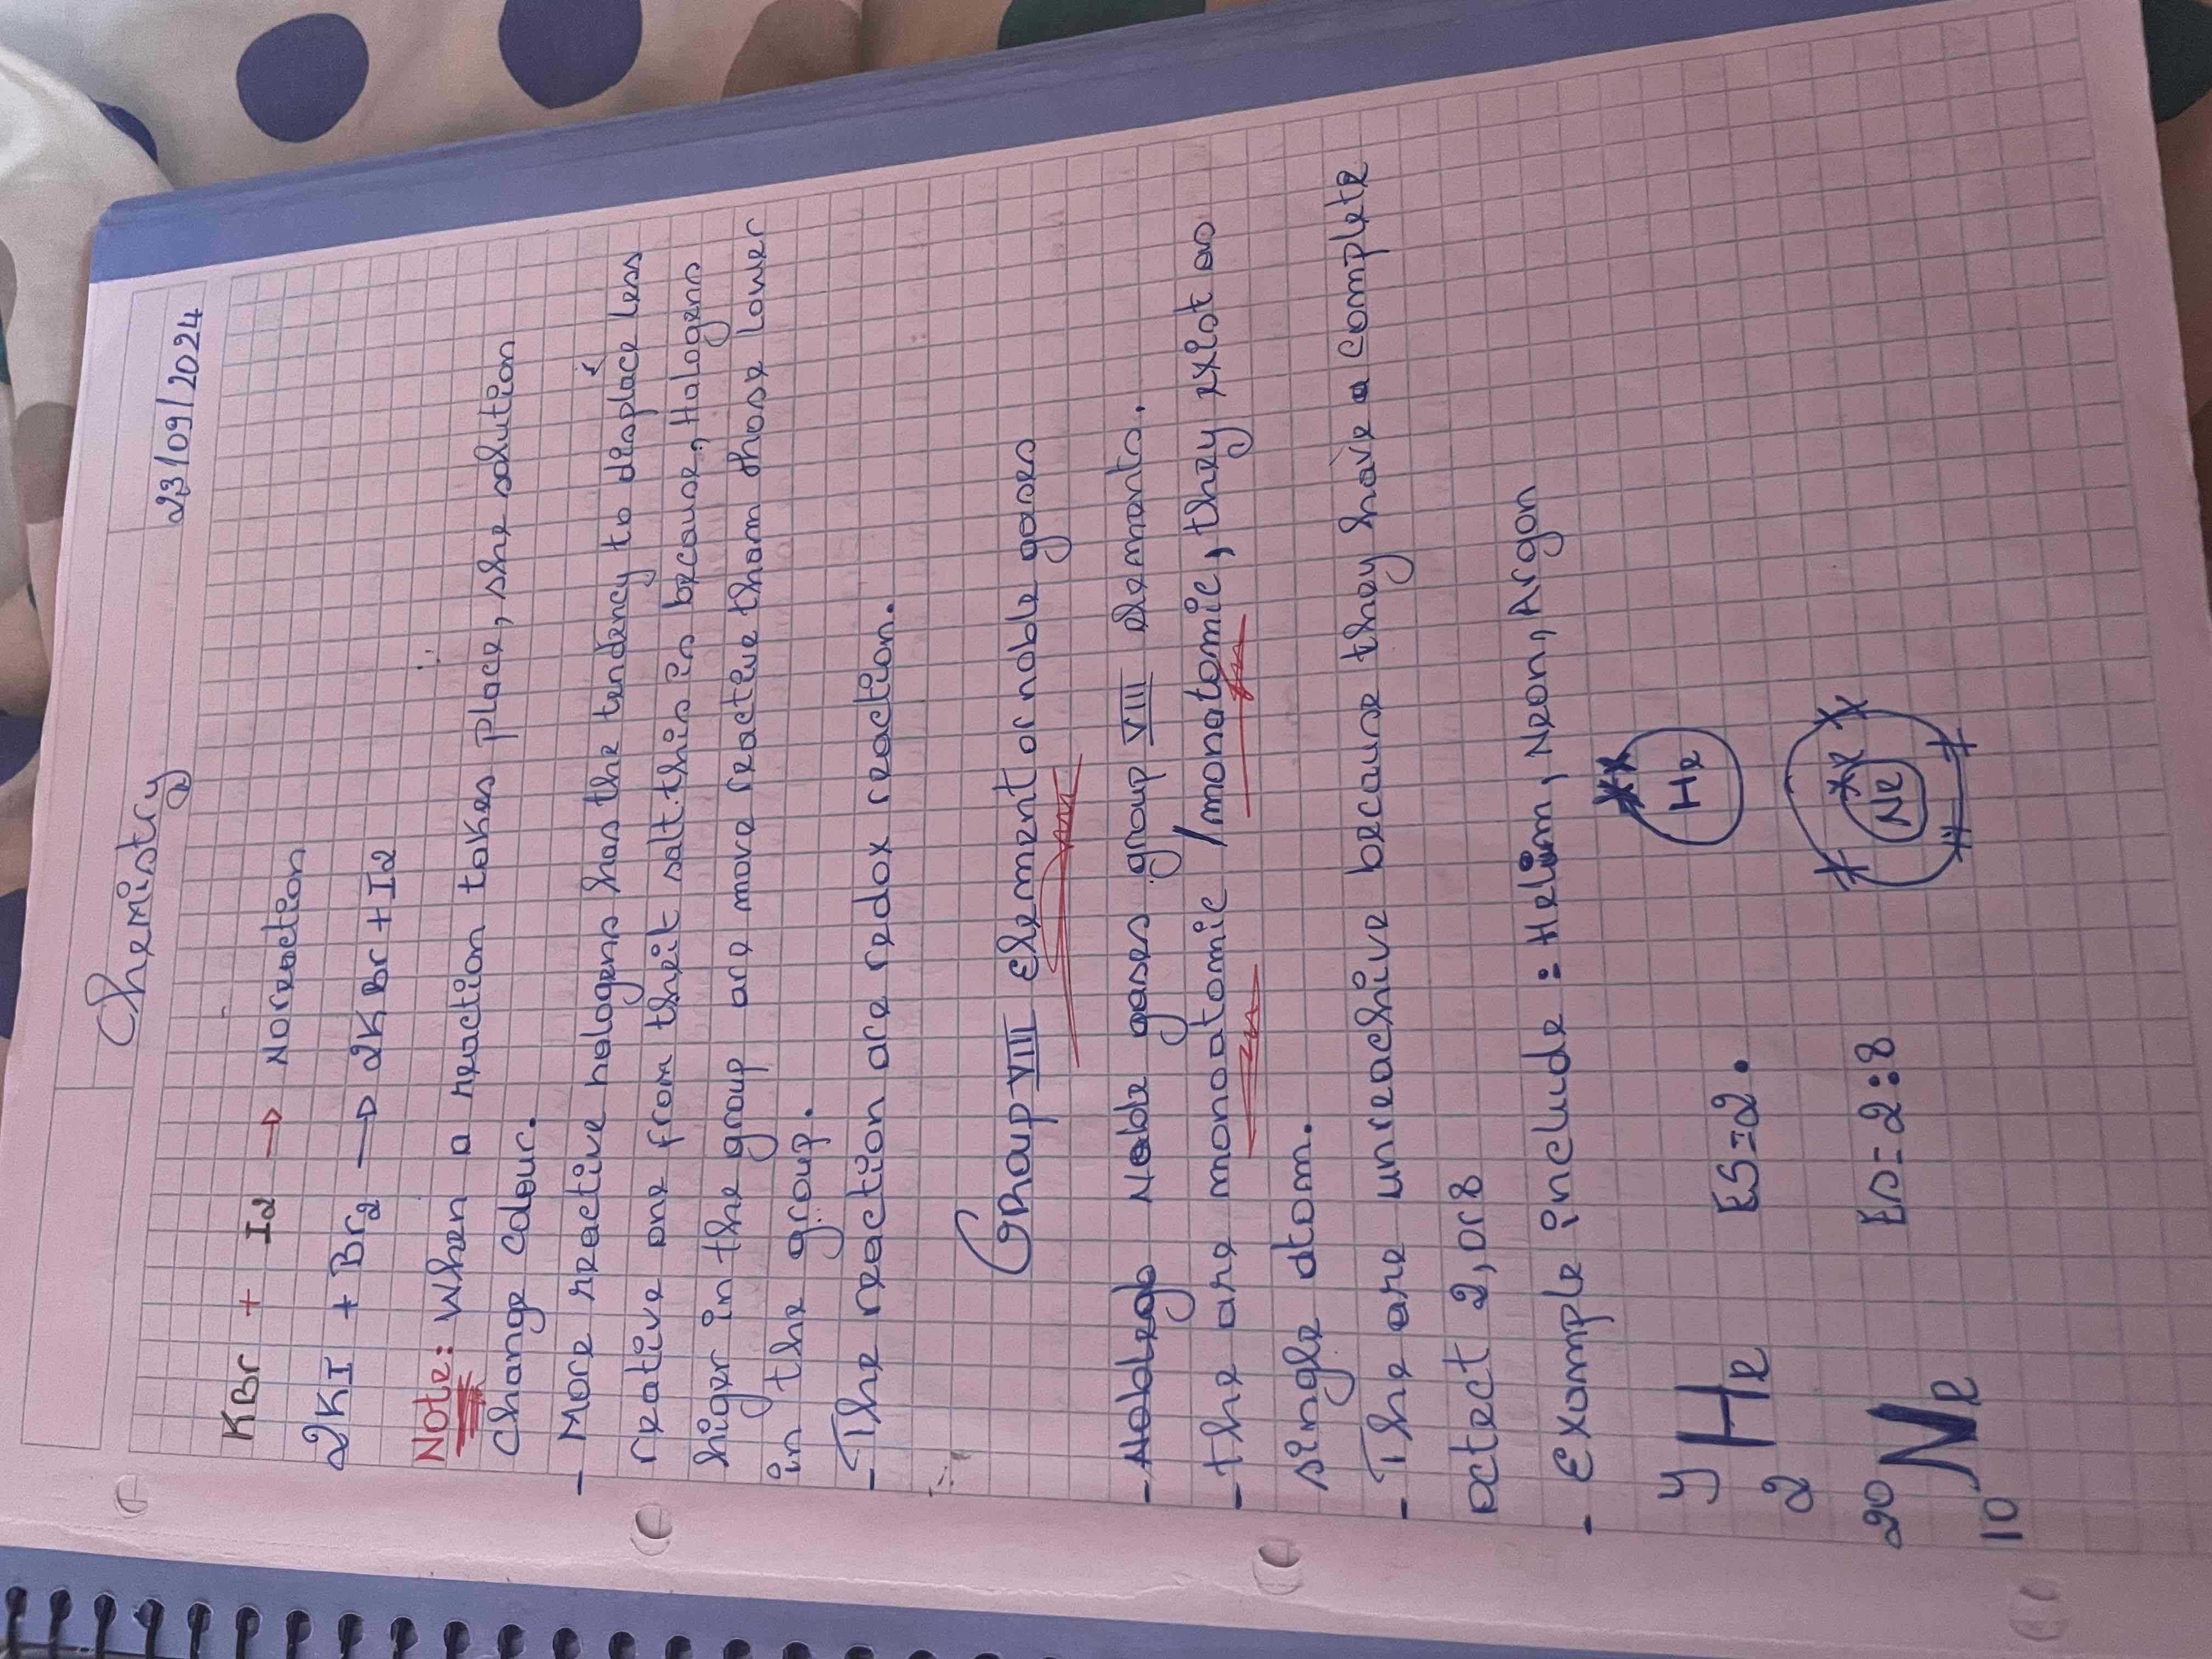 Chemistry
23/09/2024
KBr + I2 → No reaction
2KI + Br2 → 2KBr + I2
Note: When a reaction takes place, she solution
Change colour.
- More reactive halogens has the tendency to displace less
reative one from theit salt. this is because, Halogens
higer in the group are more reactive than those lower
in the group.
- The reaction are redox reaction.
Group VIII Element or noble gases
- Noble gases group VIII elements.
- the are monoatomic / monatomic, they exist as
single atom.
- The are unreachive because they have a complete
octect 2, or 8
- Example include : Helium, Neon, Argon
4
He
2
ES=2.
He
20
Ne
10
Es=2:8
Ne